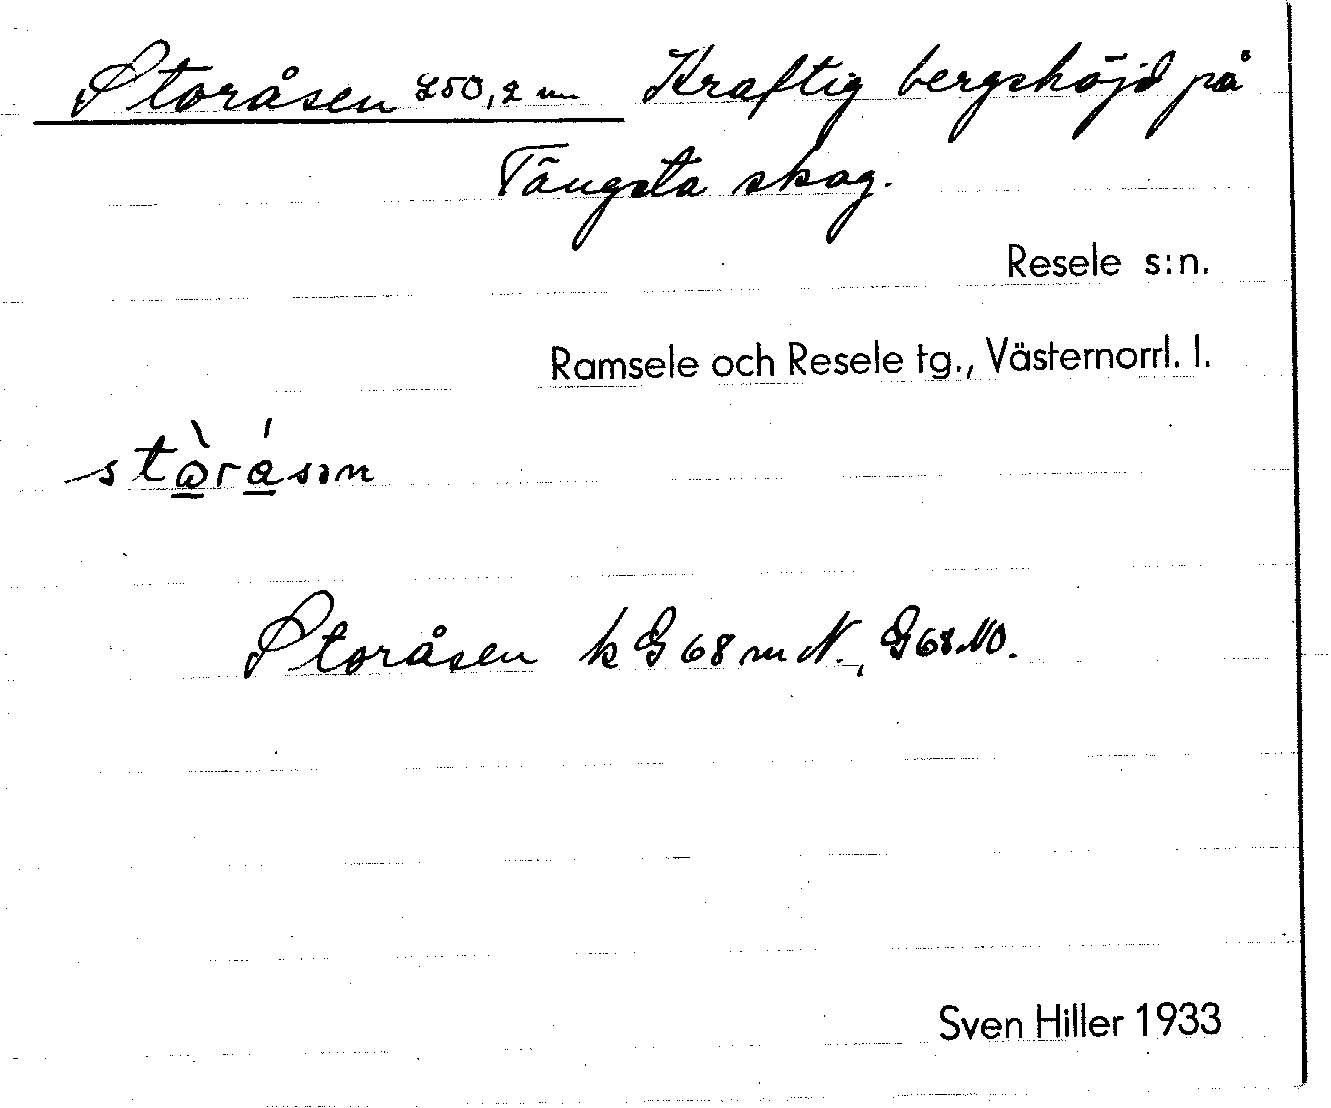 Storåsen 250,2 m Kraftig bergshöjd på
Tängsta skog.
Resele s:n.
Ramsele och Resele tg., Västernorrl. l.
Storåsen k G 68 m N., G 68 NO.
Sven Hiller 1933